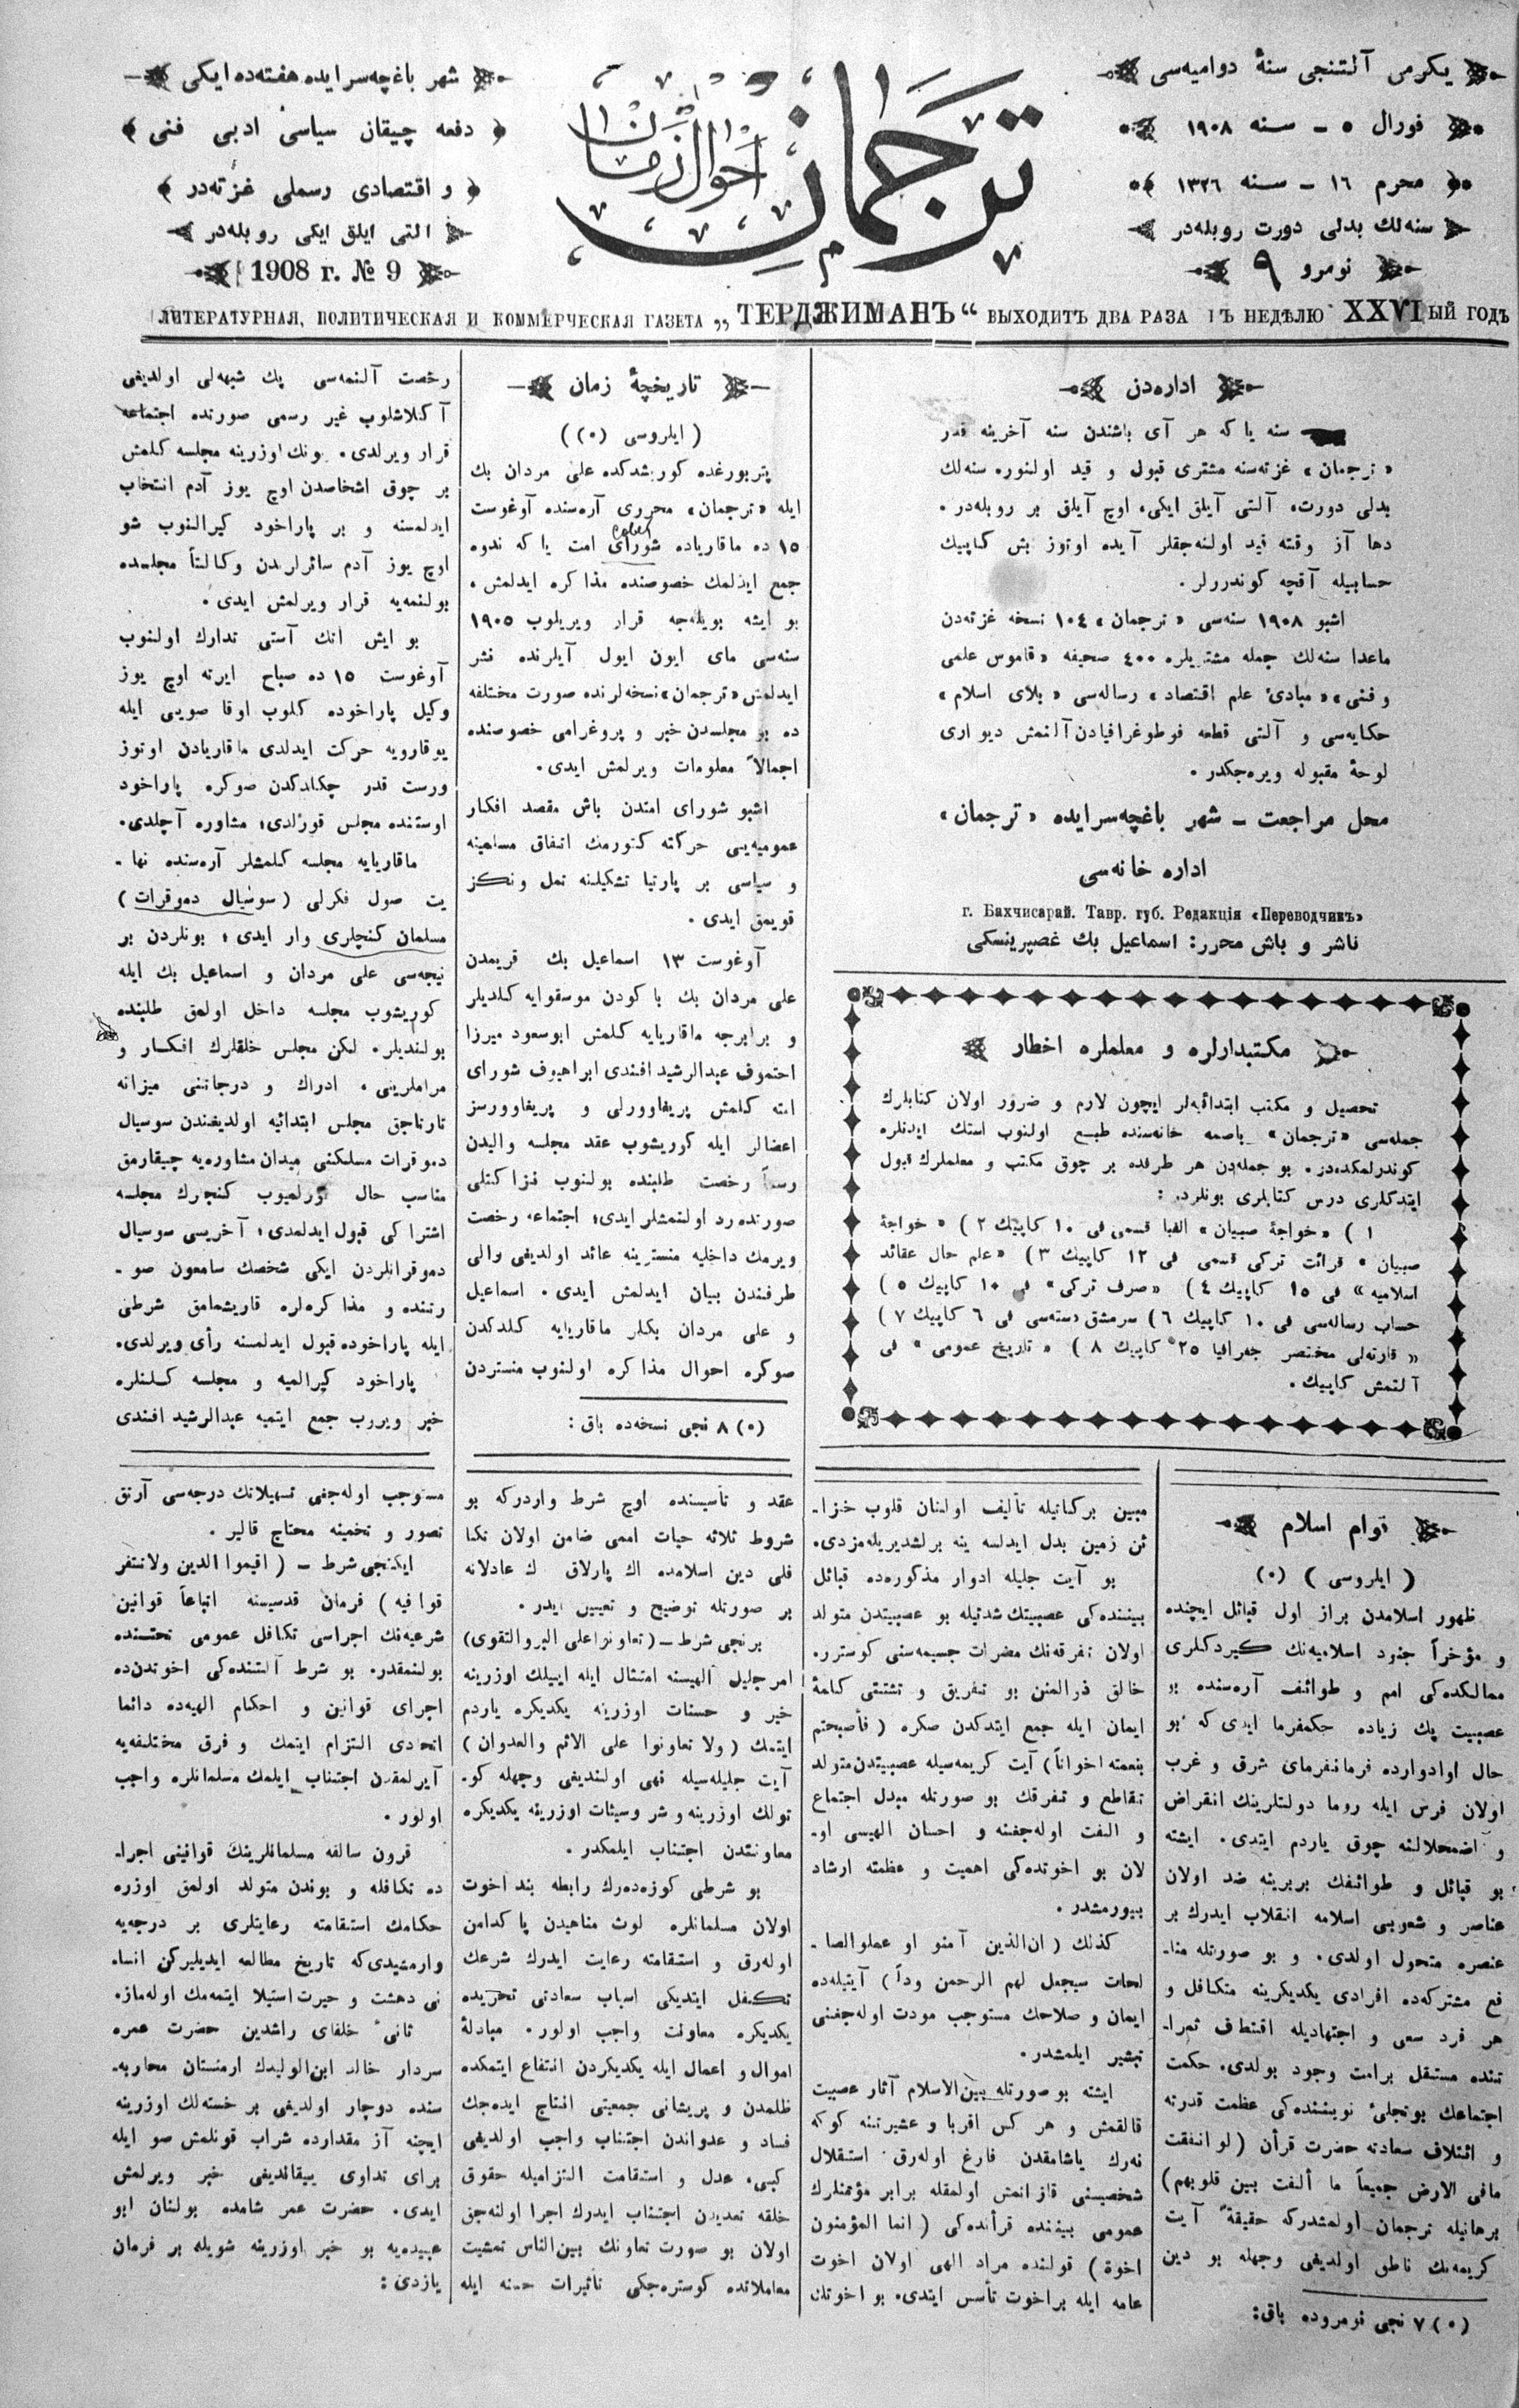 یكرمی آلتنجی سنۀ دوامیه‌سی
فورال ٥ ــ سنه ١٩٠٨
محرم ١٦ ــ سنه ١٣٢٦
سنه‌لك بدلی دورت روبله‌در
نومرو ٩
ترجمان
احوال زمان
شهر باغچه‌سرایده هفته‌ده ایكی
دفعه چیقان سیاسی ادبی فنی
و اقتصادی رسملی غزته‌در
التی ایلق ایكی روبله‌در
1908 г. № 9
ЛИТЕРАТУРНАЯ, ПОЛИТИЧЕСКАЯ И КОММЕРЧЕСКАЯ ГАЗЕТА „ТЕРДЖИМАНЪ“ ВЫХОДИТЪ ДВА РАЗА ВЪ НЕДѢЛЮ XXVIЫЙ ГОДЪ
اداره‌دن
سنه یا كه هر آی باشندن سنه آخرینه قدر
«ترجمان» غزته‌سنه مشتری قبول و قید اولنور، سنه‌لك
بدلی دورت، آلتی آیلق ایكی، اوچ آیلق بر روبله‌در.
دها آز وقته قید اولنه‌جقلر آیده اوتوز بش كاپیك
حسابیله آقچه كوندررلر.
اشبو ١٩٠٨ سنه‌سی «ترجمان» ١٠٤ نسخه غزته‌دن
ماعدا سنه‌لك جمله مشتریلره ٤٠٠ صحیفه «قاموس علمی
و فنی» «مبادئ علم اقتصاد» رساله‌سی «بلای اسلام»
حكایه‌سی و آلتی قطعه فوطوغرافیادن آلنمش دیواری
لوحۀ مقبوله ویره‌جكدر.
محل مراجعت ــ شهر باغچه‌سرایده «ترجمان»
اداره خانه‌سی
г. Бахчисарай. Тавр. губ. Редакція «Переводчикъ»
ناشر و باش محرر: اسماعیل بك غصپرینسكی
مكتبدارلره و معلملره اخطار
تحصیل و مكتب ابتدائیه‌لر ایچون لازم و ضرور اولان كتابلرك
جمله‌سی «ترجمان» باصمه خانه‌سنده طبع اولنوب استك ایدنلره
كوندرلمكده‌در. بو جمله‌دن هر طرفده بر چوق مكتب و معلملرك قبول
ایتدكلری درس كتابلری بونلردر:
١) «خواجۀ صبیان» الفبا قسمی فی ١٠ كاپیك ٢) «خواجۀ
صبیان» قرائت تركی قسمی فی ١٢ كاپیك ٣) «علم حال عقائد
اسلامیه» فی ١٥ كاپیك ٤) «صرف تركی» فی ١٠ كاپیك ٥)
حساب رساله‌سی فی ١٠ كاپیك ٦) سرمشق دسته‌سی فی ٦ كاپیك ٧)
«قارته‌لی مختصر جغرافیا ٢٥ كاپیك ٨) «تاریخ عمومی» فی
آلتمش كاپیك.
تاریخچۀ زمان
(ایلروسی (٥))
پتربورغده كورشدكده علی مردان بك
ایله «ترجمان» محرری آره‌سنده آوغوست
١٥ ده ماقاریاده شورای امت یا كه ندوه
جمع ایدلمك خصوصنده مذاكره ایدلمش.
بو ایشه بویله‌جه قرار ویریلوب ١٩٠٥
سنه‌سی مای ایون ایول آیلرنده نشر
ایدلمش «ترجمان» نسخه‌لرنده صورت مختلفه
ده بو مجلسدن خبر و پروغرامی خصوصنده
اجمالاً معلومات ویرلمش ایدی.
اشبو شورای امتدن باش مقصد افكار
عمومیه‌یی حركته كتورمك اتفاق مسلمینه
و سیاسی بر پارتیا تشكیلنه تمل و نكز
قویمق ایدی.
آوغوست ١٣ اسماعیل بك قریمدن
علی مردان بك باكودن موسقوایه كلدیلر
و برابرجه ماقاریایه كلمش ابوسعود میرزا
احتموف عبدالرشید افندی ابراهیموف شورای
امته كلمش پریغاوورلی و پریغاوورسز
اعضالر ایله كوریشوب عقد مجلسه والیدن
رسماً رخصت طلبنده بولنوب نزاكتلی
صورتده رد اولنمشلر ایدی؛ اجتماعه رخصت
ویرمك داخلیه منسترینه عائد اولدیغی والی
طرفندن بیان ایدلمش ایدی. اسماعیل
و علی مردان بكلر ماقاریایه كلدكدن
صوكره احوال مذاكره اولنوب منستردن
(٥) ٨ نجی نسخه‌ده باق:
رخصت آلنمه‌سی پك شبهه‌لی اولدیغی
آكلاشلوب غیر رسمی صورتده اجتماعه
قرار ویرلدی. بونك اوزرینه مجلسه كلمش
بر چوق اشخاصدن اوچ یوز آدم انتخاب
ایدلمسنه و بر پاراخود كیرالنوب شو
اوچ یوز آدم سائرلردن وكالتاً مجلسده
بولنمه‌یه قرار ویرلمش ایدی.
بو ایش انك آستی تدارك اولنوب
آوغوست ١٥ ده صباح ایرته اوچ یوز
وكیل پاراخوده كلوب اوقا صویی ایله
یوقارویه حركت ایدلدی ماقاریادن اوتوز
ورست قدر چكلدكدن صوكره پاراخود
اوستنده مجلس قورلدی؛ مشاوره آچلدی.
ماقاریایه مجلسه كلمشلر آره‌سنده نها-
یت صول فكرلی (سوسیال دموقرات)
مسلمان كنجلری وار ایدی؛ بونلردن بر
نیجه‌سی علی مردان و اسماعیل بك ایله
كوریشوب مجلسه داخل اولمق طلبنده
بولندیلر. لكن مجلس خلقلرك افكار و
مراملرینی، ادراك و درجاتنی میزانه
تارتاجق مجلس ابتدائیه اولدیغندن سوسیال
دموقرات مسلكنی میدان مشاوره‌یه چیقارمق
مناسب حال كورلمیوب كنجلرك مجلسه
اشتراكی قبول ایدلمدی؛ آخریسی سوسیال
دموقراتلردن ایكی شخصك سامعون صو-
رتنده و مذاكره‌لره قاریشمامق شرطی
ایله پاراخوده قبول ایدلمسنه رأی ویرلدی.
پاراخود كیرالمیه و مجلسه كلنلره
خبر ویروب جمع ایتمیه عبدالرشید افندی
قوام اسلام
(ایلروسی) (٥)
ظهور اسلامدن براز اول قبائل ایچنده
و مؤخراً جنود اسلامیه‌نك كیردكلری
ممالكده‌كی امم و طوائف آره‌سنده بو
عصبیت پك زیاده حكمفرما ایدی كه بو
حال اوادوارده فرمانفرمای شرق و غرب
اولان فرس ایله روما دولتلرینك انقراض
و اضمحلالنه چوق یاردم ایتدی. ایشته
بو قبائل و طوائفك بربرینه ضد اولان
عناصر و شعوبی اسلامه انقلاب ایدرك بر
عنصره متحول اولدی. و بو صورتله منا-
فع مشتركه‌ده افرادی یكدیكرینه متكافل و
هر فرد سعی و اجتهادیله اقتطاف ثمرا-
تنده مستقل بر امت وجود بولدی. حكمت
اجتماعك بو تجلئ نوینینده‌كی عظمت قدرته
و ائتلاف سعادته حضرت قرآن (لو انفقت
مافی الارض جمیعاً ما ألفت بین قلوبهم)
برهانیله ترجمان اولمشدركه حقیقةً آیت
كریمه‌نك ناطق اولدیغی وجهله بو دین
(٥) ٧ نجی نومروده باق:
مبین بركاتیله تألیف اولنان قلوب خزا-
ئن زمین بدل ایدلسه ینه برلشدیریله‌مزدی.
بو آیت جلیله ادوار مذكوره‌ده قبائل
بیننده‌كی عصبیتك شدتیله بو عصبیتدن متولد
اولان تفرقه‌نك مضرات جسیمه‌سنی كوسترر.
خالق ذوالمنن بو تفریق و تشتتی كلمۀ
ایمان ایله جمع ایتدكدن صكره (فأصبحتم
بنعمته اخواناً) آیت كریمه‌سیله عصبیتدن متولد
تقاطع و تفرقك بو صورتله مبدل اجتماع
و الفت اوله‌جغنه و احسان الهیسی او-
لان بو اخوتده‌كی اهمیت و عظمته ارشاد
بیورمشدر.
كذلك (ان الذین آمنو او عملوالصا-
لحات سیجعل لهم الرحمن وداً) آیتیله‌ده
ایمان و صلاحك مستوجب مودت اوله‌جغنی
تبشیر ایلمشدر.
ایشته بو صورتله بین الاسلام آثار عصبیت
قالقمش و هر كس اقربا و عشیرتنه كوكه
نه‌رك یاشامقدن فارغ اوله‌رق استقلال
شخصیسنی قازانمش اولمقله برابر مؤمنلرك
عمومی بیننده قرآنده‌كی (انما المؤمنون
اخوة) قولنده مراد الهی اولان اخوت
عامه ایله بر اخوت تأسس ایتدی. بو اخوتك
عقد و تأسیسنده اوچ شرط واردركه بو
شروط ثلاثه حیات اممی ضامن اولان تكا
فلی دین اسلامده اك پارلاق ك عادلانه
بر صورتله توضیح و تعیین ایدر.
برنجی شرط ــ (تعاونوا علی البر والتقوی)
امر جلیل الهیسنه امتثال ایله ایبیلك اوزرینه
خیر و حسنات اوزرینه یكدیكره یاردم
ایتمك (ولا تعاونوا علی الاثم والعدوان)
آیت جلیله‌سیله نهی اولندیغی وجهله كو-
تولك اوزرینه و شر و سیئات اوزرینه یكدیكره
معاونتدن اجتناب ایلمكدر.
بو شرطی كوزه‌ده‌رك رابطه بند اخوت
اولان مسلمانلره لوث مناهیدن پاكدامن
اوله‌رق و استقامته رعایت ایدرك شرعك
تكفل ایتدیكی اسباب سعادتی تحریده
یكدیكره معاونت واجب اولور. مبادلۀ
اموال و اعمال ایله یكدیكردن انتفاع ایتمكده
ظلمدن و پریشانی جمعیتی انتاج ایده‌جك
فساد و عدواندن اجتناب واجب اولدیغی
كبی، عدل و استقامت التزامیله حقوق
خلقه تعدیدن اجتناب ایدرك اجرا اولنه‌جق
اولان بو صورت تعاونك بین الناس تمشیت
معاملاتده كوستره‌جكی تأثیرات حسنه ایله
مستوجب اوله‌جغی تسهیلاتك درجه‌سی آرتق
تصور و تخمینه محتاج قالیر.
ایكنجی شرط ــ (اقیموا الدین ولاتتفر
قوا فیه) فرمان قدسیسنه اتباعاً قوانین
شرعیه‌نك اجراسی تكافل عمومی تحتنده
بولنمقدر. بو شرط آلتنده‌كی اخوتدن‌ده
اجرای قوانین و احكام الهیه‌ده دائما
اتحادی التزام ایتمك و فرق مختلفه‌یه
آیرلمقدن اجتناب ایلمك مسلمانلره واجب
اولور.
قرون سالفه مسلمانلرینك قوانینی اجرا-
ده تكافله و بوندن متولد اولمق اوزره
حكامك استقامته رعایتلری بر درجه‌یه
وارمشیدی كه تاریخ مطالعه ایدیلیركن انسا-
نی دهشت و حیرت استیلا ایتمه‌مك اوله‌ماز.
ثانیٔ خلفای راشدین حضرت عمره
سردار خالد ابن الولیدك ارمنستان محاربه-
سنده دوچار اولدیغی بر خسته‌لك اوزرینه
ایچنه آز مقدارده شراب قونلمش صو ایله
برای تداوی ییقاندیغی خبر ویرلمش
ایدی. حضرت عمر شامده بولنان ابو
عبیده‌یه بو خبر اوزرینه شویله بر فرمان
یازدی: